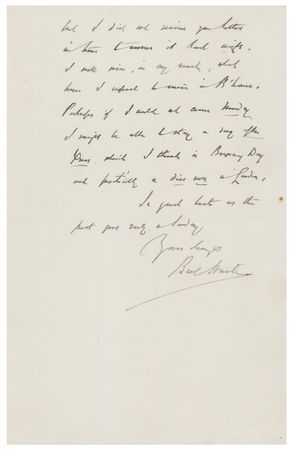 but I did not receive your letter
in time to answer it that night.
I will wire, in my reach, what
hour I expect to arrive at
Perhaps if I could not come Monday
I might be able to stay a day after
Xmas which I think is Boxing Day
and practically a dies non in London.
In great haste as the
post goes early on Sunday
Yours always
Bret Harte